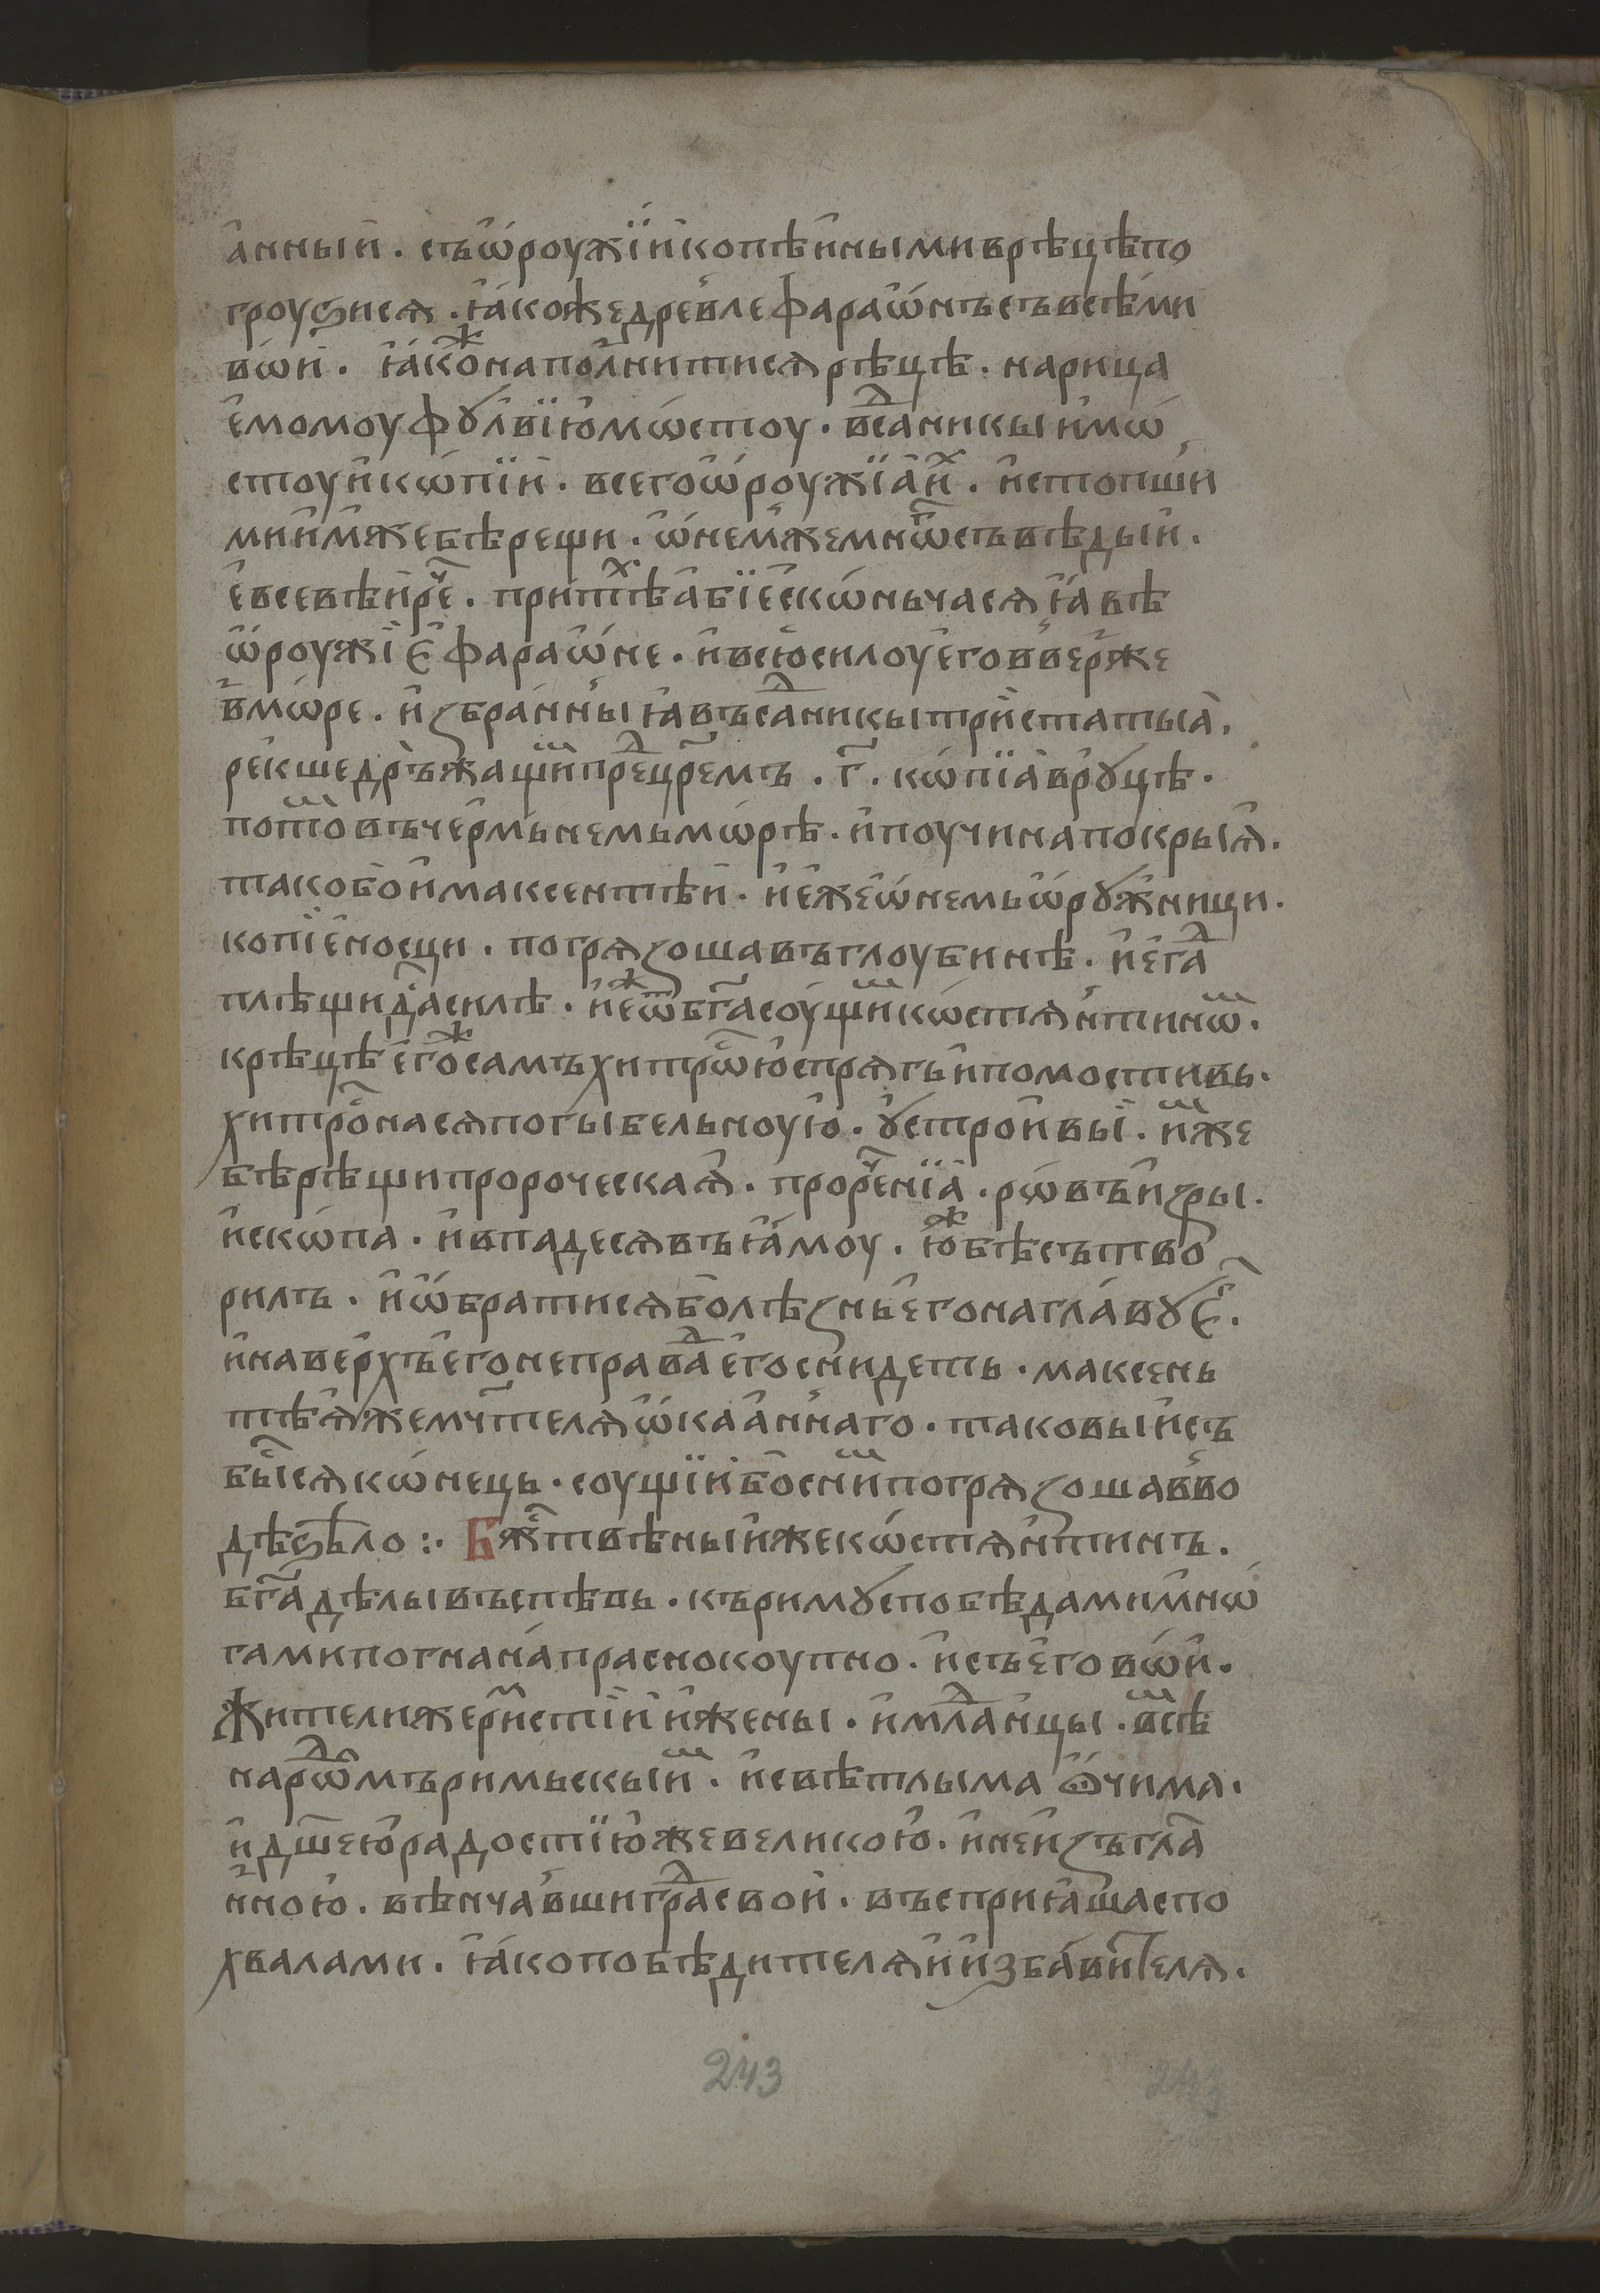 а҆нный . съѡ҆роужїи҆копѣ́ными врѣцѣпо
гроуѕисѧ . ꙗ҆коже древле фараѡ҆нъ съ всѣми
вѡи . ꙗ҆кⷤонаполнитисѧ рѣцѣ . нарица
е҆момоу фꙋлвїю мѡстоу . всⷣаникы и҆мѡ
стоу и҆кѡпїи . всегоѡ҆роужїа и҆ⷯ . и҆стопши
ми и҆мже бѣ рещи . ѡ҆немже мнѡⷢ съвѣдый .
е҆всевѣи рⷱе . притⷯѣ а҆бїе скѡньчасѧ ꙗ҆вѣ
ѡ҆роужїе фараѡ҆не . и҆всю силоу е҆го въверже
вмѡре . и҆збранны ꙗ҆ въсⷣаникы тристатыа҆ .
рекше дръжащⷲи преⷣцрⷭемъ . г҃ . кѡпїа врꙋцѣ .
потоⷲ въ чермьнемь мѡрѣ . и҆поучина покрыѧ .
тако бо и҆ максентѣи . и҆ е҆же ѡ҆немь ѡ҆рꙋжници .
копїе носци . погрѧзоша въ глоубинѣ . и҆ е҆гⷣа
плѣщи дⷭа силѣ . и҆ⷤеѿ бгⷭа соущⷲи кѡстѧнтинѡⷲ .
крѣцѣ е҆гⷤо самъ хитрⷭѡю спрѧгъ и҆ помостивь .
хитрⷭона сѧ погыбельноую . ꙋ҆строивы . тⷲѣмже
бѣ рѣщи пророческаѧ . прорⷱенїа . рѡвъ и҆зры .
и҆скѡпа . и҆впадесѧ въ ꙗ҆моу . ю҆ⷤ бѣ сътво
рилъ . и҆ѡ҆братисѧ болѣзнь е҆го на главꙋ еⷢ .
и҆наверхъ е҆го неправⷣа е҆го снидеть . максень
тѣѧже мчⷭтелѧ ѡ҆каа҆ннаго . таковыи съ
бысⷭѧ кѡнець . соущїи бо снⷲи погрѧзоша вво
дѣ ѕѣло :· Бжⷭтвѣный же кѡстѧнтинъ .
бгⷭа дѣлы въспѣвь . къ римꙋ с побѣдами мнѡ
гами погна напрасно коупно . и҆съ е҆го вѡи .
жители же рⷨистїи и҆жены . и҆млⷣанцы . всⷲѣ
нарѡⷣмъ римьскыиⷨ . и҆свѣтлыма ѻчима .
и҆дш҃ею радостїю же великою . и҆неизъглⷭа
нною . вѣнчавши грⷣа свой . въсприꙗшаспо
хвалами . ꙗ҆ко побѣдителѧ и҆ избавителѧ .
243